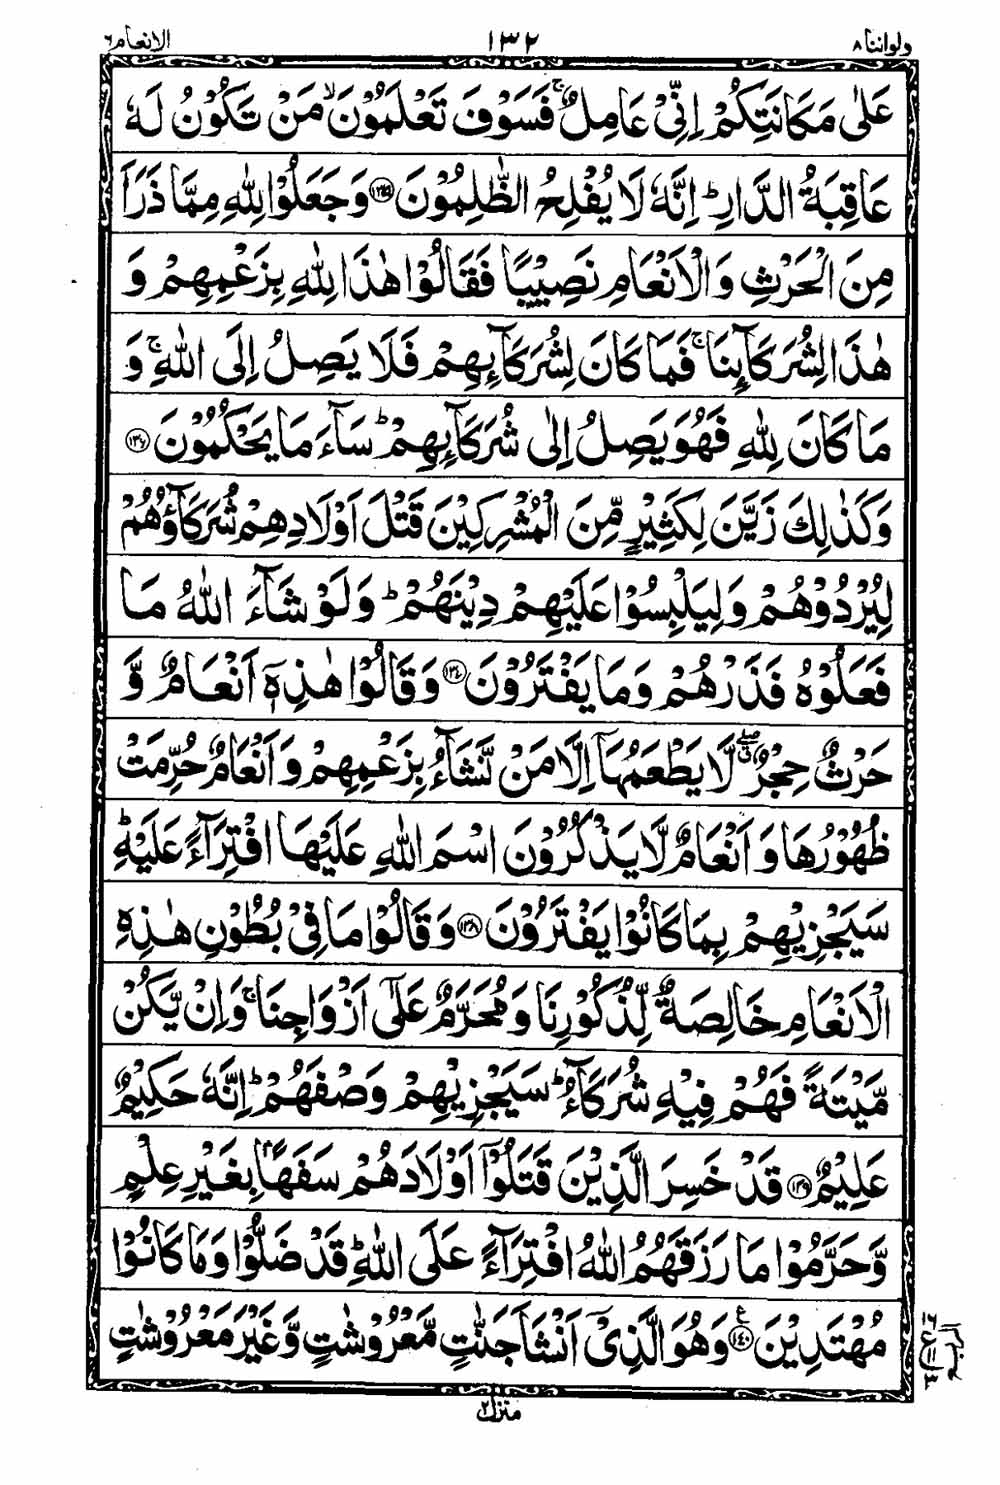 ولواننا ٨ ١٣٢ الانعام ٦
عَلٰى مَكَانَتِكُمْ اِنِّىْ عَامِلٌ ۚ فَسَوْفَ تَعْلَمُوْنَ ۙ مَنْ تَكُوْنُ لَهٗ
عَاقِبَةُ الدَّارِ ؕ اِنَّهٗ لَا يُفْلِحُ الظّٰلِمُوْنَ ﴿۱۳۵﴾ وَجَعَلُوْا لِلّٰهِ مِمَّا ذَرَاَ
مِنَ الْحَرْثِ وَالْاَنْعَامِ نَصِيْبًا فَقَالُوْا هٰذَا لِلّٰهِ بِزَعْمِهِمْ وَ
هٰذَا لِشُرَكَآئِنَا ۚ فَمَا كَانَ لِشُرَكَآئِهِمْ فَلَا يَصِلُ اِلَى اللّٰهِ ۚ وَ
مَا كَانَ لِلّٰهِ فَهُوَ يَصِلُ اِلٰى شُرَكَآئِهِمْ ؕ سَآءَ مَا يَحْكُمُوْنَ ﴿۱۳۶﴾
وَكَذٰلِكَ زَيَّنَ لِكَثِيْرٍ مِّنَ الْمُشْرِكِيْنَ قَتْلَ اَوْلَادِهِمْ شُرَكَآؤُهُمْ
لِيُرْدُوْهُمْ وَلِيَلْبِسُوْا عَلَيْهِمْ دِيْنَهُمْ ؕ وَلَوْ شَآءَ اللّٰهُ مَا
فَعَلُوْهُ فَذَرْهُمْ وَمَا يَفْتَرُوْنَ ﴿۱۳۷﴾ وَقَالُوْا هٰذِهٖۤ اَنْعَامٌ وَّ
حَرْثٌ حِجْرٌ ۖ ق لَّا يَطْعَمُهَاۤ اِلَّا مَنْ نَّشَآءُ بِزَعْمِهِمْ وَاَنْعَامٌ حُرِّمَتْ
ظُهُوْرُهَا وَاَنْعَامٌ لَّا يَذْكُرُوْنَ اسْمَ اللّٰهِ عَلَيْهَا افْتِرَآءً عَلَيْهِ ؕ
سَيَجْزِيْهِمْ بِمَا كَانُوْا يَفْتَرُوْنَ ﴿۱۳۸﴾ وَقَالُوْا مَا فِىْ بُطُوْنِ هٰذِهِ
الْاَنْعَامِ خَالِصَةٌ لِّذُكُوْرِنَا وَمُحَرَّمٌ عَلٰٓى اَزْوَاجِنَا ۚ وَاِنْ يَّكُنْ
مَّيْتَةً فَهُمْ فِيْهِ شُرَكَآءُ ؕ سَيَجْزِيْهِمْ وَصْفَهُمْ ؕ اِنَّهٗ حَكِيْمٌ
عَلِيْمٌ ﴿۱۳۹﴾ قَدْ خَسِرَ الَّذِيْنَ قَتَلُوْۤا اَوْلَادَهُمْ سَفَهًۢا بِغَيْرِ عِلْمٍ
وَّحَرَّمُوْا مَا رَزَقَهُمُ اللّٰهُ افْتِرَآءً عَلَى اللّٰهِ ؕ قَدْ ضَلُّوْا وَمَا كَانُوْا
مُهْتَدِيْنَ ﴿۱۴۰﴾ ع وَهُوَ الَّذِىْۤ اَنْشَاَ جَنّٰتٍ مَّعْرُوْشٰتٍ وَّغَيْرَ مَعْرُوْشٰتٍ
منزل ٢